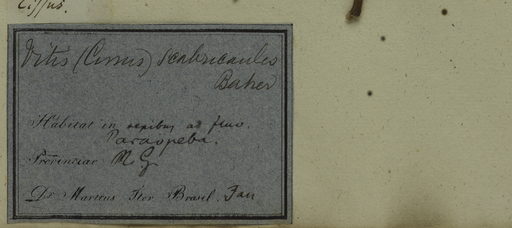 Cissus.
Vitis (Cissus) scabricaulis
Baker
Habitat in sepibus ad fluv.
Paraopeba.
Provinciae M. G.
Dr Martius Flor Brasil. Jan